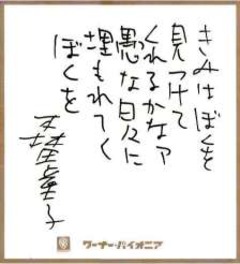 きみはぼくを
見つけて
くれるかなァ
愚な日々に
埋もれてく
ぼくを
ワーナー・パイオニア